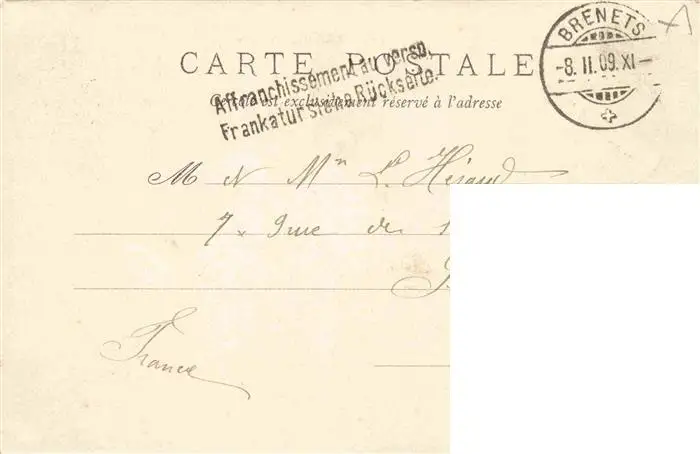 BRENETS
-8. II. 09. XI-
CARTE POSTALE
Affranchissement au verso.
Frankatur siehe Rückseite.
Ce côté est exclusivement réservé à l'adresse
M et Mn L. Héraud
7
France